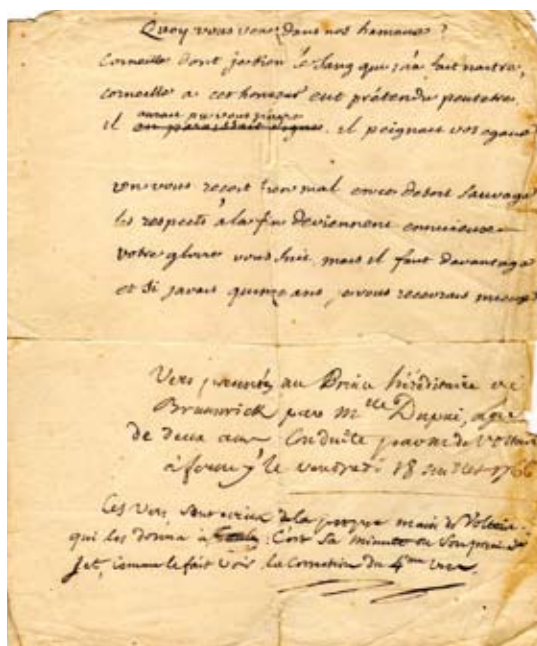 Quoy vous venez dans nos hameaux?
Corneille dont je tien le sang qui m'a fait naitre,
corneille a cet honneur eut prétendu peutetre
aurait pu vous peindre
il en paraissait digne, il peignait vos egaux

on vous reçoit bien mal en ce desert sauvage
les respects à la fin deviennent ennuieux
votre gloire vous suit, mais il faut davantage
et si javais quinze ans, je vous recevrais mieux

Vers au Prince héréditaire de
Brunswick par Mlle Dupui, agée
de deux ans conduite par m de Voltaire
à ferney le vendredi 18 1766

Ces vers sont écrits de la propre main de Voltaire
qui les donna à C'est sa minute ou son premier
jet, comme le fait voir la correction du 4me vers